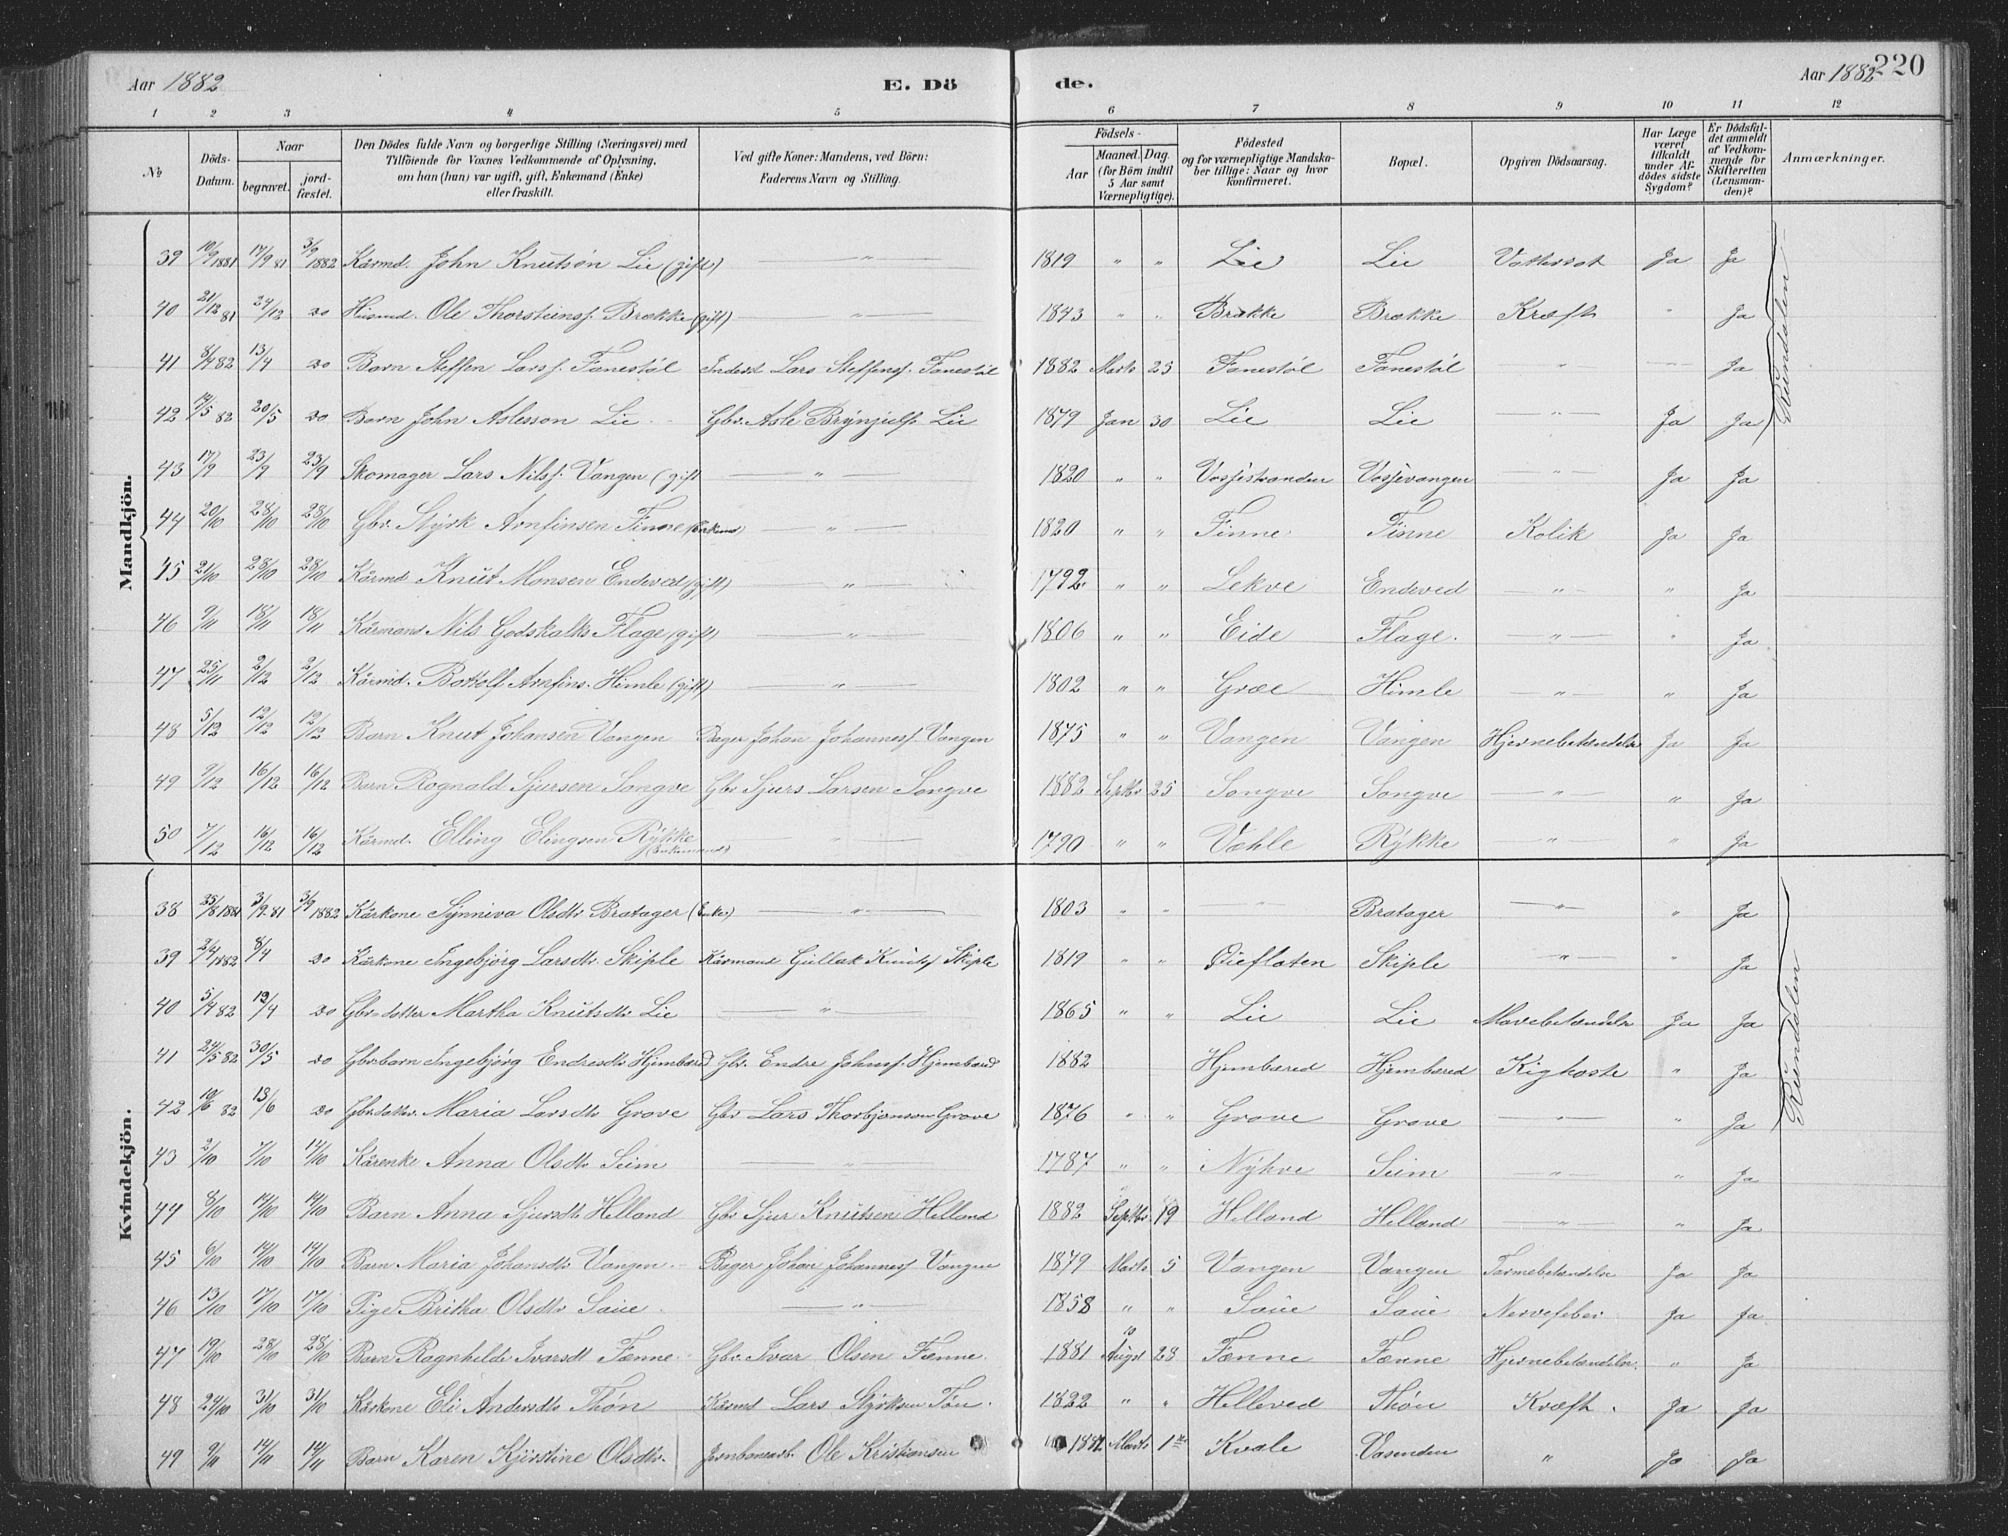 Aar 1882 E. Dö de. Aar 1882 220
1 2 3 4 5 6 7 8 9 10 11 12
№
Döds-Datum.
Naar
begravet.
jord-fæstet.
Den Dödes fulde Navn og borgerlige Stilling (Næringsvei) med
Tilföiende for Voxnes Vedkommende af Oplysning,
om han (hun) var ugift, gift, Enkemand (Enke)
eller fraskilt.
Ved gifte Koner: Mandens, ved Börn:
Faderens Navn og Stilling.
Födsels-
Aar
Maaned. Dag.
(for Börn indtil
5 Aar samt
Værnepligtige).
Födested
og for værnepligtige Mandska-
ber tillige: Naar og hvor
konfirmeret.
Bopæl.
Opgiven Dödsaarsag.
Har Læge
været
tilkaldt
under Af-
dödes sidste
Sygdom?
Er Dödsfal-
det anmeldt
af Vedkom-
mende for
Skifteretten
(Lensman-
den)?
Anmærkninger.
Mandkjön.
39 10/9 1881 17/9 81 3/9 1882 Kårmd. John Knutson Lie (gift) — " — 1819 " " Lie Lie Vattersot Ja Ja
40 21/12 81 24/12 do Husmd. Ole Thorsteinsf. Brække (gift) — " — 1843 " " Brække Brække Kræft " Ja
41 8/4 82 13/4 do Barn Steffen Larsf. Fanestøl Inderst Lars Steffensf. Fanestøl 1882 Marts 25 Fanestøl Fanestøl — " — Ja
42 14/5 82 20/5 do Barn John Aslesson Lie Gbr. Asle Brynjulfs. Lie 1879 Jan 30 Lie Lie — " — Ja Ja
Rundalen
43 17/9 23/9 23/9 Skomager Lars Nilsf. Vangen (gift — " — 1820 " " Vossestranden Vossevangen — " — Ja Ja
44 20/10 28/10 28/10 Gbr. Styrk Arnfinsen Finne (Enkemd) — " — 1820 " " Finne Finne Kolik Ja Ja
45 21/10 28/10 28/10 Kårmd Knut Monsen Endeved (gift) — " — 1792 " " Lekve Endeved — " — " Ja
46 9/11 18/11 18/11 Kårmand Nils Godskalks Flage (gift) — " — 1806 " " Eide Flage. — " — " Ja
47 25/11 2/12 2/12 Kårmd. Bottolf Arnfins. Himle (gift) — " — 1802 " " Græe Himle — " — " Ja
48 5/12 12/12 12/12 Barn Knut Johansen Vangen Bager Johan Johannesf. Vangen 1875 " " Vangen Vangen Hjernebetændelse Ja Ja
49 9/12 16/12 16/12 Barn Rognald Sjursen Songve Gbr Sjurs Larsen Songve 1882 Septbr 25 Songve Songve — " — " Ja
50 7/12 16/12 16/12 Kårmd. Elling Elingsen Rykke (Enkemand) — " — 1790 " " Væhle Rykke — " — " Ja
Kvindekjön.
38 25/8 1881 3/9 81 3/9 1882 Kårkone Synniva Olsdtr Bratager (Enke) — " — 1803 " " — " — Bratager — " — " Ja
39 2/4 1882 8/4 do Kårkone Ingebjørg Larsdtr. Skiple Kårmand Gullak Knutsf Skiple 1819 " " Gieflaten Skiple — " — Ja
40 5/4 82 13/4 do Gbr.-dotter Martha Knutsdtr Lie — " — 1865 " " Lie Lie Mavebetændelse Ja Ja
41 24/5 82 30/5 do Gbr.barn Ingebjørg Endresdtr Hjembæred Gbr. Endre Johnsf. Hjembæred 1882 Hjembæred Hjembæred Kighoste " Ja
42 10/6 82 13/6 do Gbr.dotter. Maria Larsdtr Grove Gbr Lars Thorbjønsen Grove 1876 " " Grove Grove — " — " Ja
Rundalen
43 2/10 7/10 14/10 Kårenke Anna Olsdtr Seim — " — 1787 " " Nyhve Seim — " — " Ja
44 8/10 14/10 14/10 Barn Anna Sjursdtr Helland Gbr Sjur Knutsen Helland 1882 Septbr 19 Helland Helland — " — " Ja
45 6/10 14/10 14/10 Barn Maria Johansdtr Vangen Bager Johan Johannesf Vangen 1879 Marts 5 Vangen Vangen Tarmebetændelse Ja Ja
46 13/10 17/10 17/10 Pige Britha Olsdtr Saue. — " — 1858 " " Saue Saue Nervefeber Ja Ja
47 19/10 28/10 28/10 Barn Ragnhilde Ivarsdt Fænne Gbr. Ivar Olsen Fænne. 1881 Augst 23 Fænne Fænne Hjernebetændelse. " Ja
48 24/10 31/10 31/10 Kårkone Eli Andersdtr Thøn Kårmd Lars Styrksen Tøn. 1822 " " Helleved Thøn Kræft. Ja Ja
49 9/11 14/11 14/11 Barn Karen Kjerstine Olsdtr. Jernbanearb. Ole Kristiansen Marts 1ste Kvale Vasenden " Ja Ja